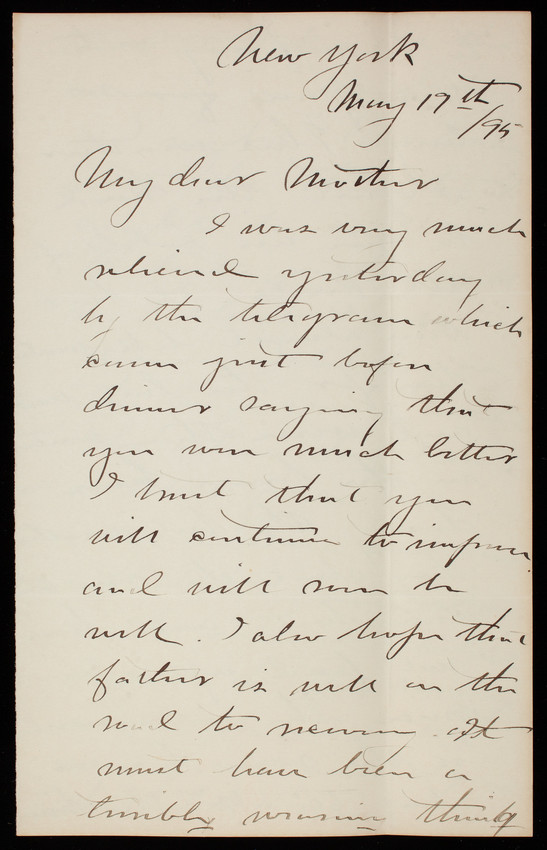 New York
May 19th
/95
My dear Mother
I was very much
relieved yesterday
by the telegram which
came just before
dinner saying that
you were much better
I trust that you
will continue to improve
and will soon be
well. I also hope that
father is well on the
road to recovery. It
must have been a
terribly wearing thing